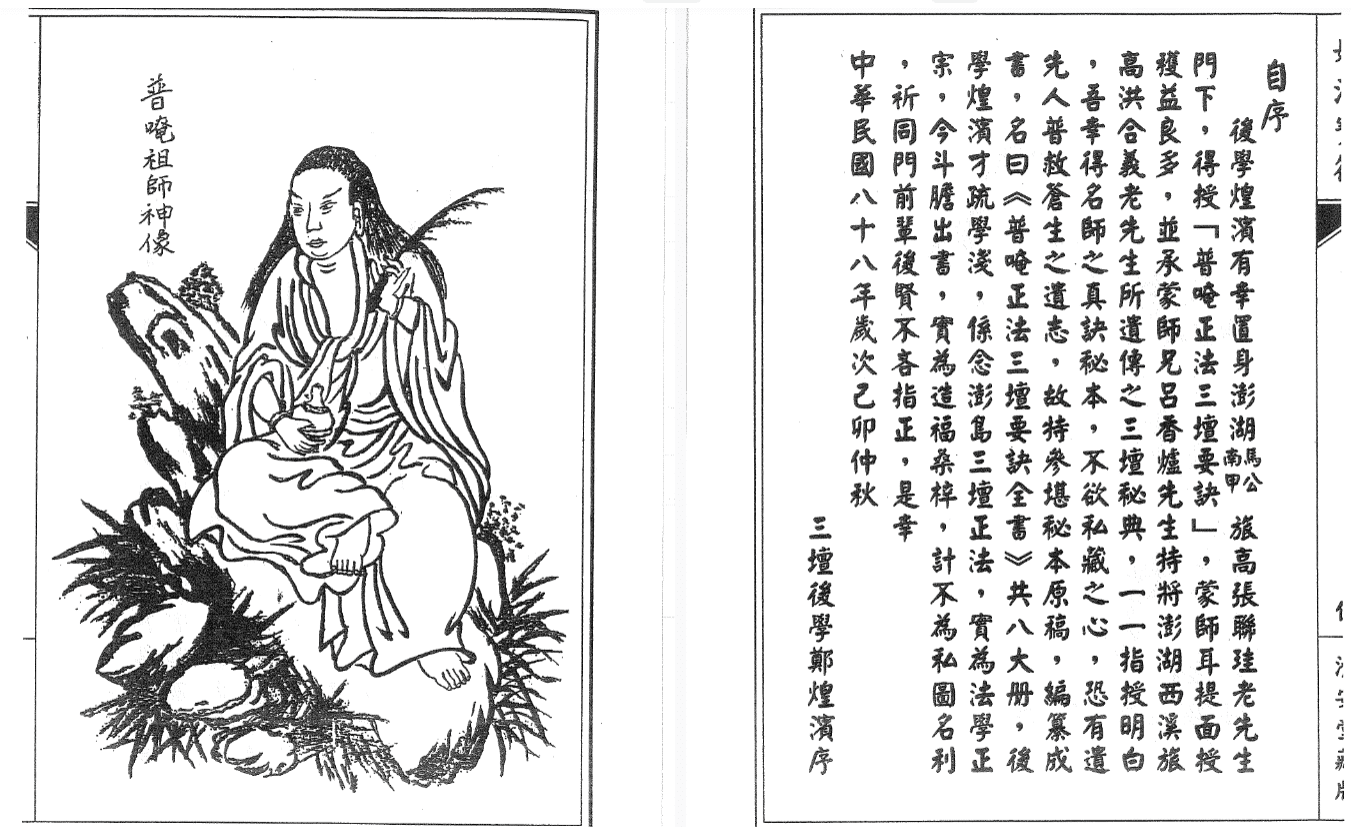 自序
後學煌濱有幸置身澎湖馬公南甲旅高張聯珪老先生
門下，得授「普唵正法三壇要訣」，蒙師耳提面授
穫益良多，並承蒙師兄呂香爐先生特將澎湖西溪旅
高洪合義老先生所遺傳之三壇秘典，一一指授明白
，吾幸得名師之真訣秘本，不欲私藏之心，恐有遺
先人普救蒼生之遺志，故特參堪秘本原稿，編纂成
書，名曰《普唵正法三壇要訣全書》共八大册，後
學煌濱才疏學淺，係念澎島三壇正法，實為法學正
宗，今斗膽出書，實為造福桑梓，計不為私圖名利
，祈同門前輩後賢不吝指正，是幸
中華民國八十八年歲次己卯仲秋
三壇後學鄭煌濱序
普唵祖師神像